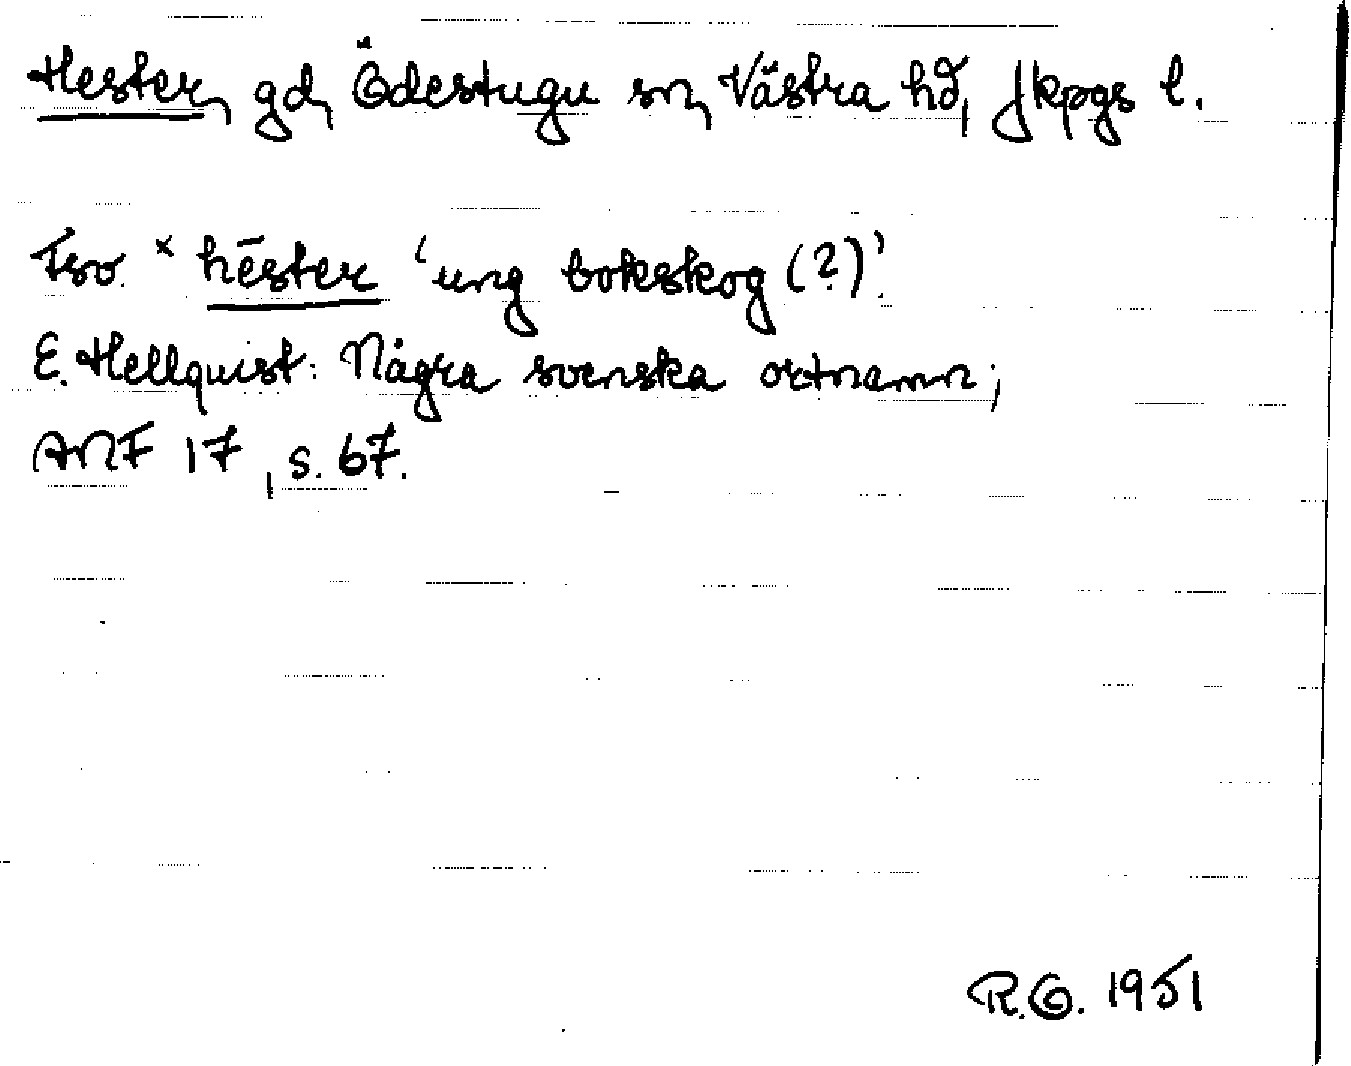 Hester, gd, Ödestugu sn, Västra hd, Jkpgs l.
Fsv. *hēster 'ung bokskog (?)'.
E. Hellquist: Några svenska ortnamn,
ANF 17, s. 67.
R.G. 1951